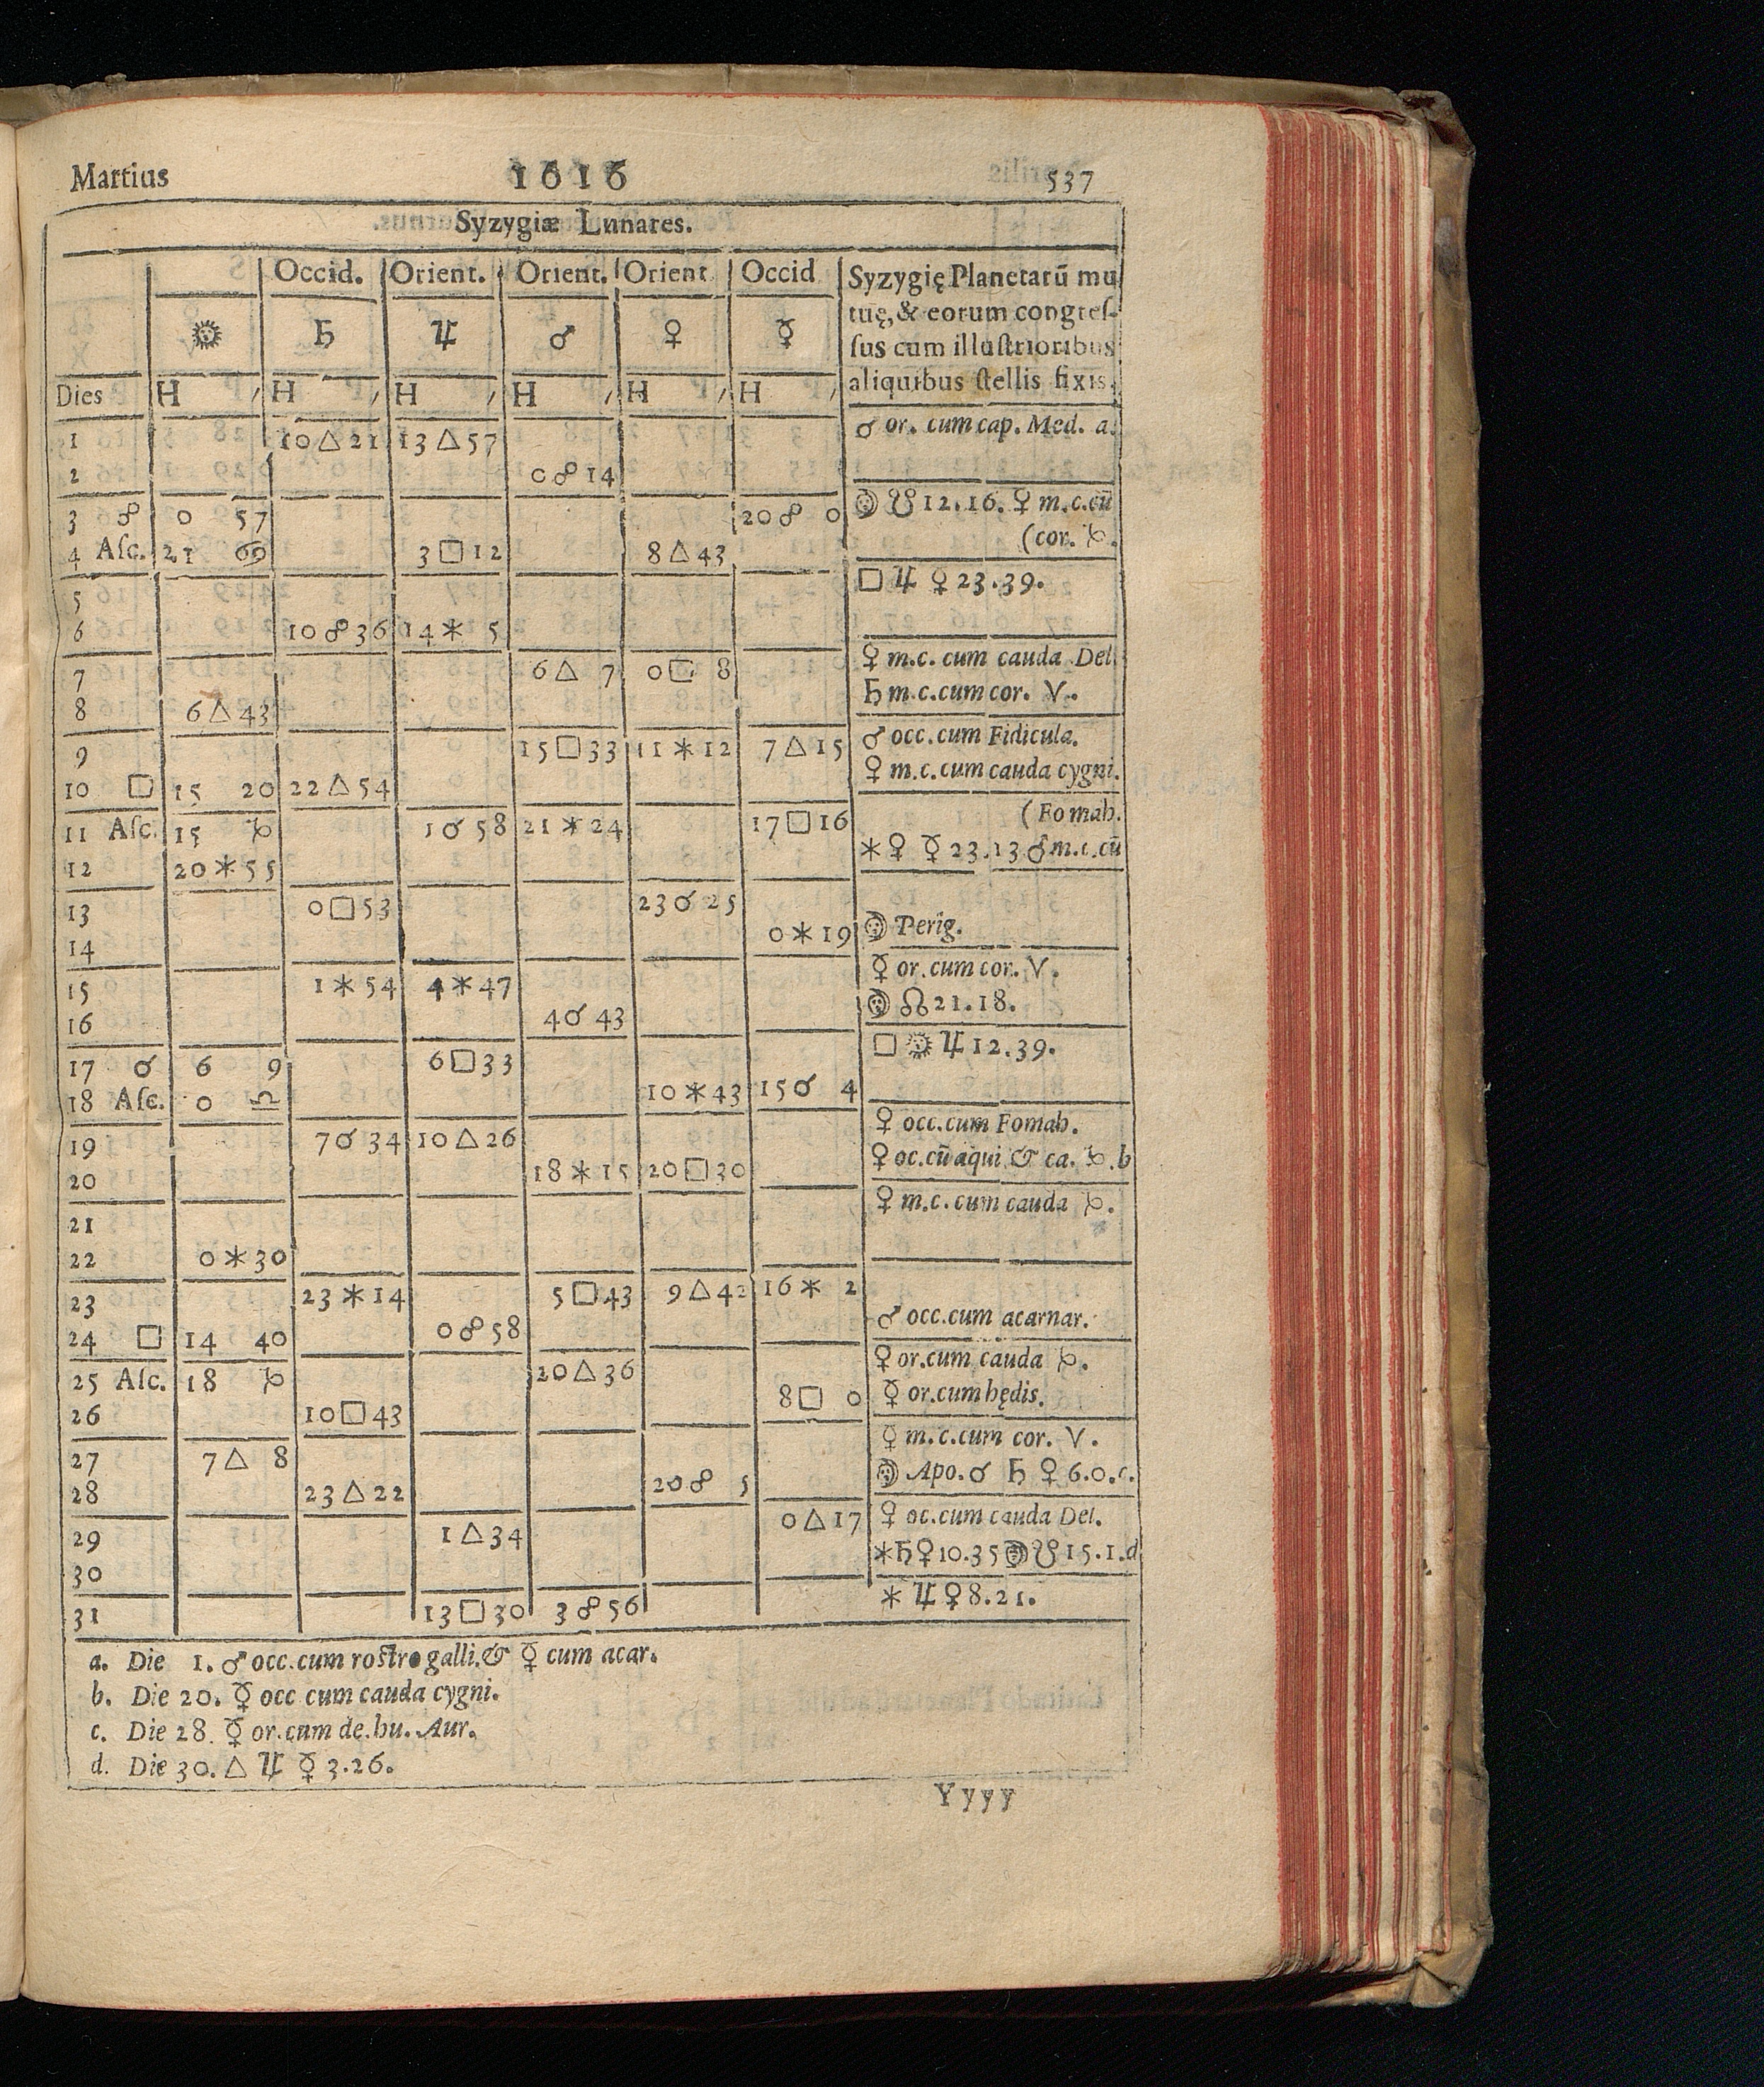 Martius 1616 537
Syzygiæ Lunares.
Occid. Orient. Orient. Orient Occid Syzygię Planetarũ mu
tuę, & eorum congreſ-
☉ ♄ ♃ ♂ ♀ ☿ ſus cum illuſtrioribus
Dies H ′ H ′ H ′ H ′ H ′ H ′ aliquibus ſtellis fixis.
1 10△21 13△57 ♂ or. cum cap. Med. a.
2 0☍14
3 ☍ 0 57 20☍ 0 ☽ ☋ 12.16. ♀ m.c.cũ
4 Aſc. 21 ♋ 3□12 8△43 (cor. ♑.
5 □ ♃ ♀ 23.39.
6 10☍36 14⚹ 5
7 6△ 7 0□ 8 ♀ m.c. cum cauda Del.
8 6△43 ♄ m.c.cum cor. ♈.
9 15□33 11⚹12 7△15 ♂ occ.cum Fidicula.
10 □ 15 20 22△54 ♀ m.c.cum cauda cygni.
11 Aſc. 15 ♑ 1☌58 21⚹24 17□16 (Fomah.
12 20⚹55 ⚹♀ ☿ 23.13 ♂ m.c.cũ
13 0□53 23☌25
14 0⚹19 ☽ Perig.
15 1⚹54 4⚹47 ☿ or.cum cor. ♈.
16 4☌43 ☽ ☊ 21.18.
17 ☌ 6 9 6□33 □ ☉ ♃ 12.39.
18 Aſc. 0 ♎ 10⚹43 15☌ 4
19 7☌34 10△26 ♀ occ.cum Fomah.
20 18⚹15 20□30 ♀ oc.cũ aqui & ca. ♑.b
21 ♀ m.c. cum cauda ♑.
22 0⚹30
23 23⚹14 5□43 9△42 16⚹ 2
24 □ 14 40 0☍58 ♂ occ.cum acarnar.
25 Aſc. 18 ♑ 20△36 ♀ or.cum cauda ♑.
26 10□43 8□ 0 ☿ or.cum hędis.
27 7△ 8 ☿ m.c.cum cor. ♈.
28 23△22 20☍ 5 ☽ Apo. ☌ ♄ ☿ 6.0.c.
29 1△34 0△17 ♀ oc.cum cauda Del.
30 ⚹♄♀10.35 ☽☋15.1.d
31 13□30 3☍56 ⚹ ♃ ♀ 8.21.
a. Die 1. ♂ occ.cum roſtro galli.& ☿ cum acar.
b. Die 20. ☿ occ cum cauda cygni.
c. Die 28. ☿ or.cum de.hu. Aur.
d. Die 30. △ ♃ ☿ 3.26.
Yyyy